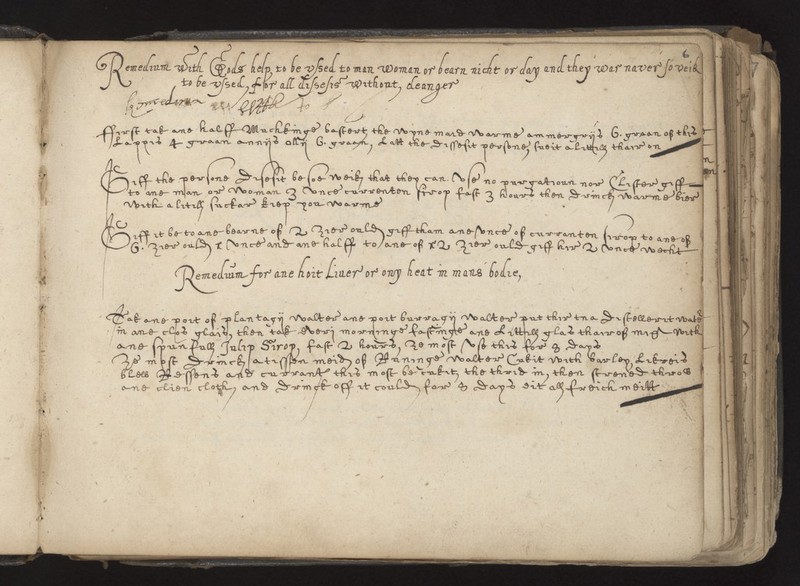 6
Remedium with Gods help to be ussed to man woman or bearn nicht or day and they war naver so veik
to be ussed, for all dissesis without, deanger
First tak ane halff Muchkinge bastert, the wyne maid warme ammergrijs 6. graan of this
Lappis 4 graan annijs olij 6. graan, Latt the dissesit persone, sueit a litill thair on
Giff the persone disesit be soe weik that they can use no purgatioun nor Clister giff
to ane man or woman 3 unce currenten sirop fast 3 hours then drinck warme bier
with a litill suckar kiep you warme
Giff it be to ane bearne of 2 Zier ould giff tham ane unce of curranten sirop to ane of
6. Zier ould, unce and ane halff to ane of 12 Zier ould giff hir 2 unce wecht
Remedium for ane hoit Liver or ony heat in mans bodie,
Tak ane poit of plantagij walter ane poit burragij walter put thir tua distellerit
in ane clos glais, then tak everi morninge fastinge ane Littill glas thair of with
ane spunfull Julip sirop, fast 2 hours, Ze most use this for 8 days
Ze most drinck a tissen meid of Runinge walter Cukit with barley, Likreis
blew Ressens and currant this most be cukit, the thrid in, then strened throw
ane clien cloth, and drinck off it could, for 8 days eit all freich meitt